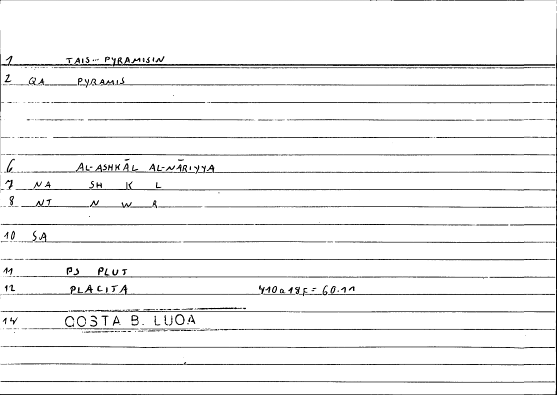 1 TAIS PYRAMISIN
2 QA PYRAMIS
6 AL-ASHKĀL AL-NĀRIYYA
7 NA SH K L
8 NT N W R
10 SA
11 PS PLUT
12 PLACITA 410a18f = 60.11
14 QOSTA B. LUQA